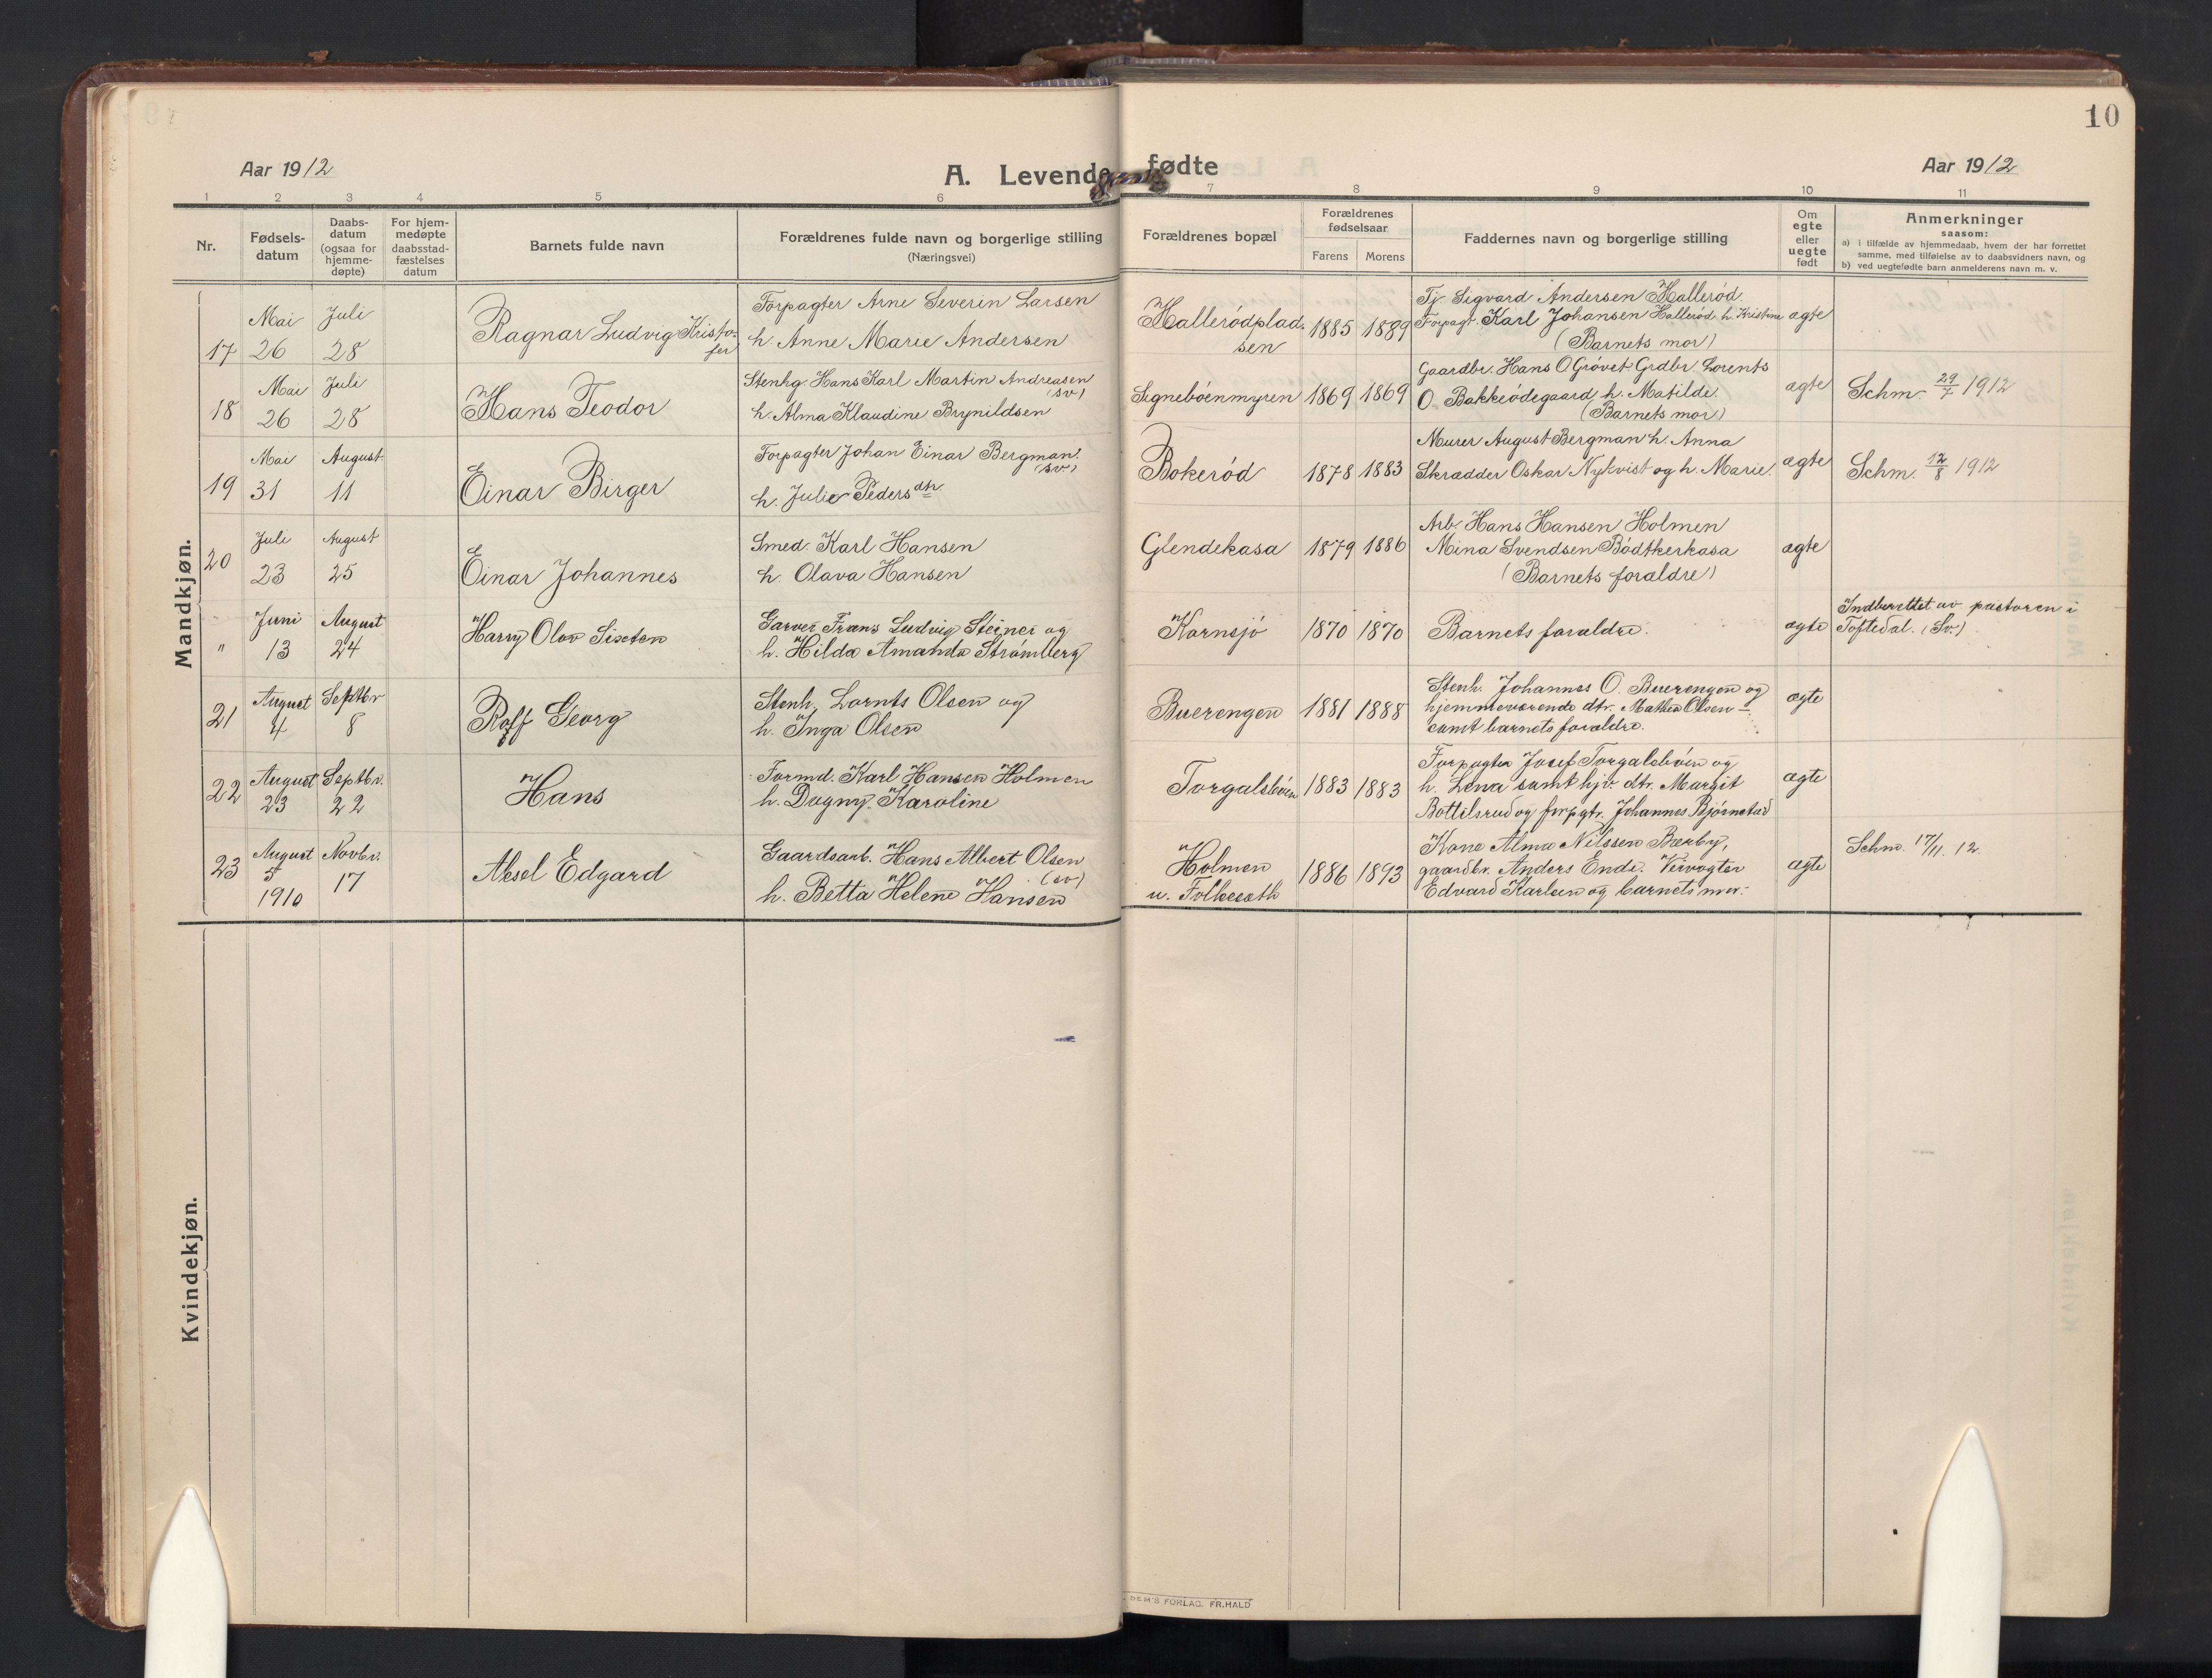 10
Aar 1912
A. Levende fødte
Aar 1912
1 2 3 4 5 6 7 8 9 10 11
Nr.
Fødsels-
datum
Daabs-
datum
(ogsaa for
hjemme-
døpte)
For hjem-
medøpte
daabsstad-
fæstelses
datum
Barnets fulde navn
Forældrenes fulde navn og borgerlige stilling
(Næringsvei)
Forældrenes bopæl
Forældrenes
fødselsaar
Farens Morens
Faddernes navn og borgerlige stilling
Om
egte
eller
uegte
født
Anmerkninger
saasom:
a) i tilfælde av hjemmedaab, hvem der har forrettet
samme, med tilføielse av to daabsvidners navn, og
b) ved uegtefødte barn anmelderens navn m. v.
Mandkjøn.
17
Mai
26
Juli
28
Ragnar Ludvig Kristo-
fer
Forpagter Arne Severin Larsen
h. Anne Marie Andersen
Hallerødplad-
sen
1885 1889
Tj. Sigvard Andersen Hallerød.
Forpagt. Karl Johansen Hallerød h. Kristine
(Barnets mor)
ægte
18
Mai
26
Juli
28
Hans Teodor
Stenhg. Hans Karl Martin Andreasen
(sv)
h. Alma Klaudine Brynildsen
Signebøenmyren
1869 1869
Gaardbr. Hans O Grøvet Grdbr. Lorents
O. Bakkeødegaard h. Matilde.
(Barnets mor)
ægte
Schm. 29/7 1912
19
Mai
31
August
11
Einar Birger
Forpagter Johan Einar Bergman.
(sv)
h. Julie Pedersdtr.
Bokerød
1878 1883
Murer August Bergman h. Anna
Skrædder Oskar Nykvist og h. Marie.
ægte
Schm. 12/8 1912
20
Juli
23
August
25
Einar Johannes
Smed. Karl Hansen
h. Olava Hansen
Glendekasa
1879 1886
Arb. Hans Hansen Holmen
Mina Svendsen Bødtkerkasa
(Barnets forældre)
ægte
"
Juni
13
August
24
Harry Olov Sixten
Garver Frans Ludvig Steiner og
h. Hilda Amanda Strømberg
Kornsjø
1870 1870
Barnets forældre.
ægte
Indberettet av pastoren i
Töftedal. (Sv.)
21
August
4
Septbr
8
Rolf Georg
Stenh. Lornts Olsen og
h. Inga Olsen
Buerengen
1881 1888
Stenh. Johannes O. Buerengen og
hjemmeværende dtr. Mathea Olsen
samt barnets forældre.
ægte
22
August
23
Septbr.
22
Hans
Formd. Karl Hansen Holmen
h. Dagny Karoline
Torgalsbøen
1883 1883
Forpagter Josef Torgalsbøen og
h. Lena samt hjv. dtr. Margit
Bottilsrud og forpgtr. Johannes Bjørnstad
ægte
23
August
5
1910
Novbr.
17
Aksel Edgard
Gaardsarb. Hans Albert Olsen
(sv)
h. Betta Helene Hansen
Holmen
u. Folkesæth
1886 1893
Kone Alma Nilssen Bærby,
gaardbr. Anders Ende. Veivogter
Edvard Karlsen og barnets mor.
ægte
Schm. 17/11. 12.
Kvindekjøn.
DEM'S FORLAG. FR. HALD